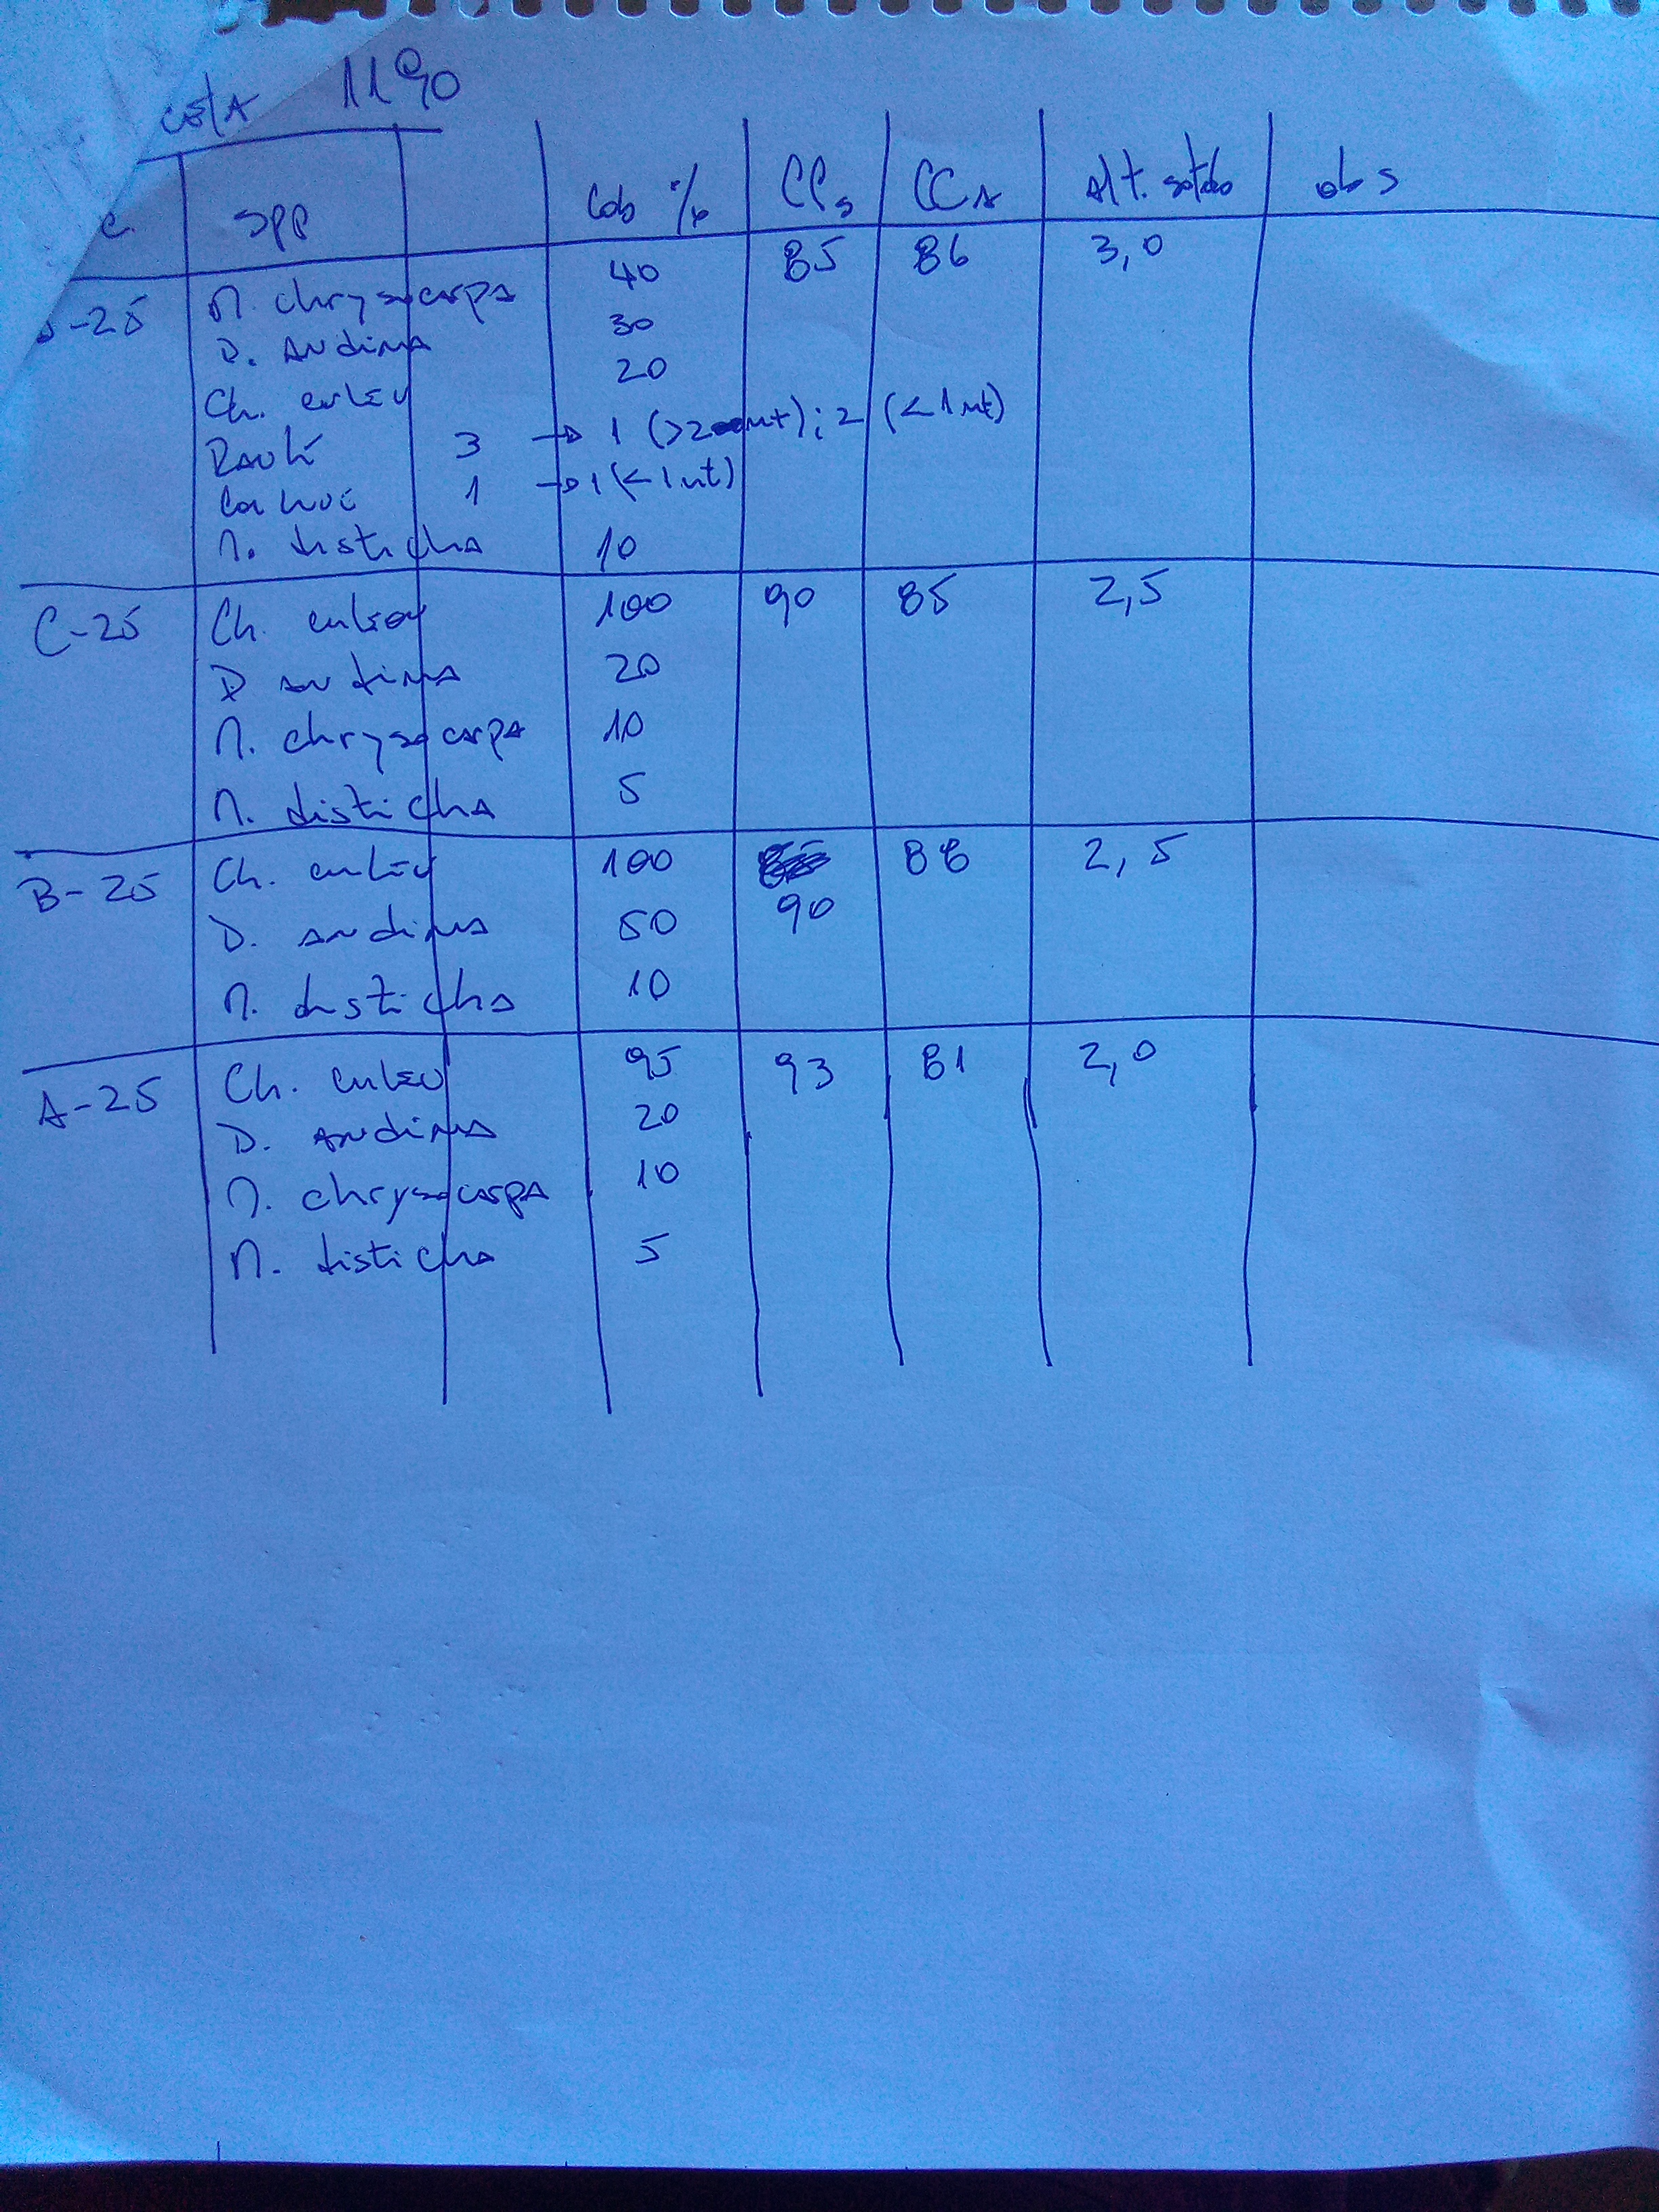 cotA 1190
c. spp Cob % CCs CCA Alt. sotob obs
-25 M. chrysocarpa 40 85 86 3,0
D. Andina 30
Ch. culeu 20
Raulí 3 → 1 (>2mt); 2 (<1mt)
Coihue 1 → 1 (<1mt)
M. disticha 10
C-25 Ch. culeou 100 90 85 2,5
D andina 20
M. chrysocarpa 10
M. disticha 5
B-25 Ch. culeu 100 88 2,5
D. andina 50 90
M. disticha 10
A-25 Ch. culeu 95 93 81 2,0
D. andina 20
M. chrysocarpa 10
M. disticha 5